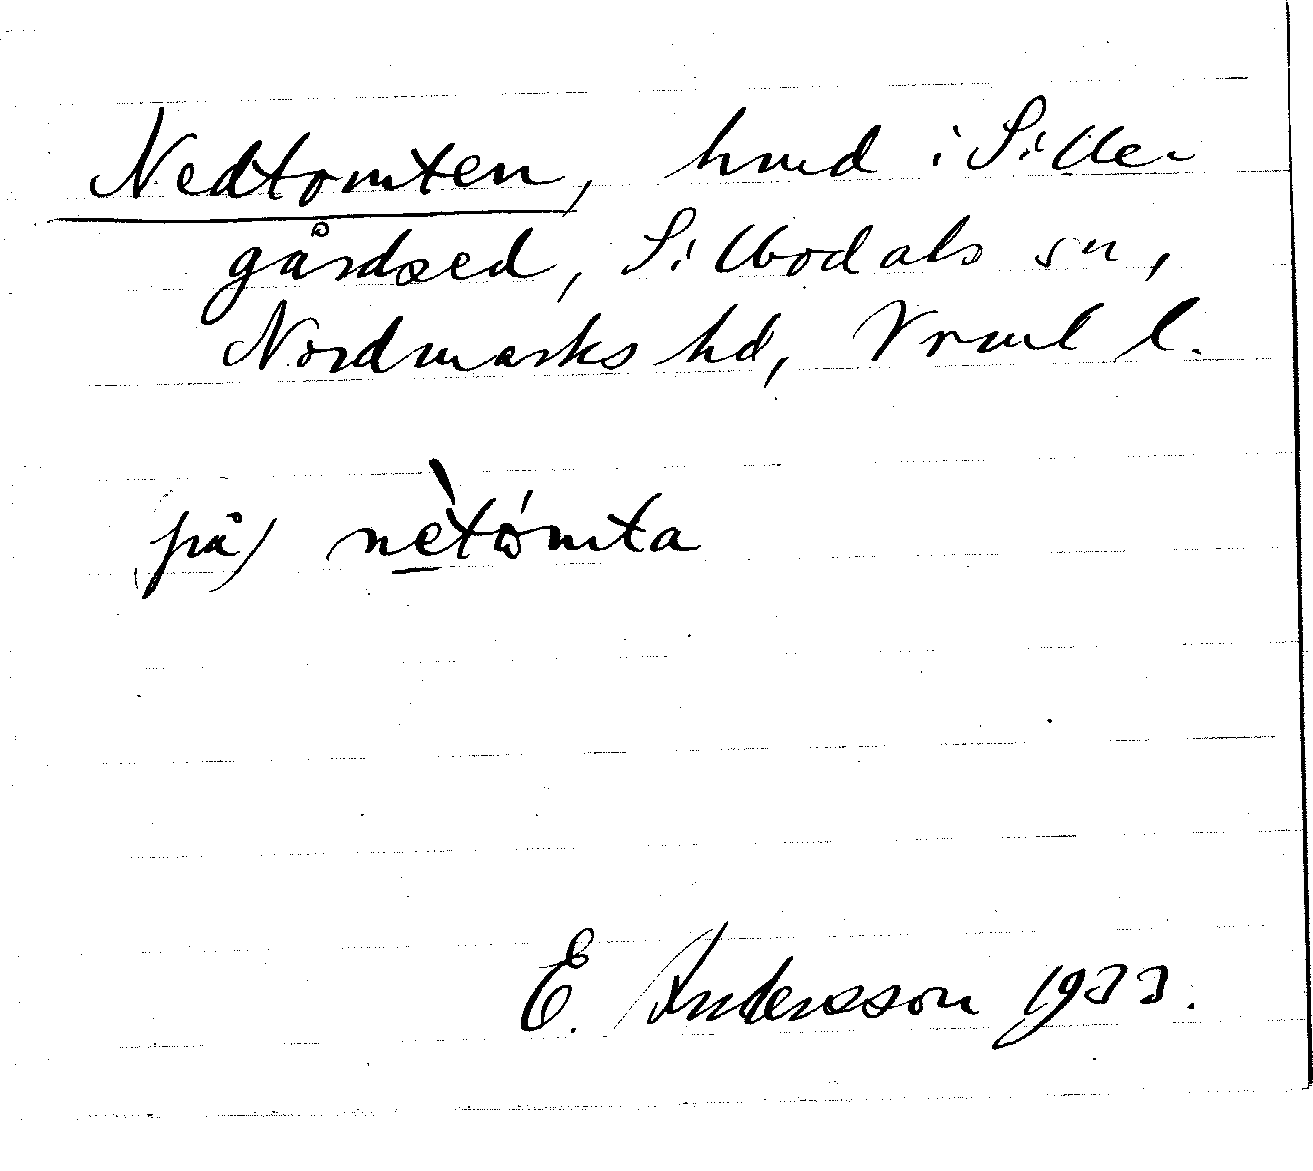 Nedtomten, hmd i Siller
gårdsed, Sillbodals sn,
Nordmarks hd, Vrml l.
på) nètómta
E. Andersson 1933.